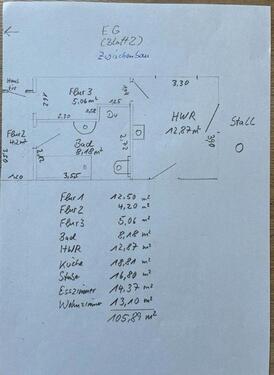 EG
(Blatt 2)
Zwischenbau
Haustür
Flur 3
5,06 m²
1,62
2,30
1,25
Du
3,30
HWR
12,87 m²
3,90
Stall
Flur 2
4,2 m²
2,50
Bad
8,18 m²
2,72
1,20
3,55
Flur 1 12,50 m²
Flur 2 4,20 m²
Flur 3 5,06 m²
Bad 8,18 m²
HWR 12,87 m²
Küche 18,81 m²
Stube 16,80 m²
Esszimmer 14,37 m²
Wohnzimmer 13,10 m²
105,89 m²